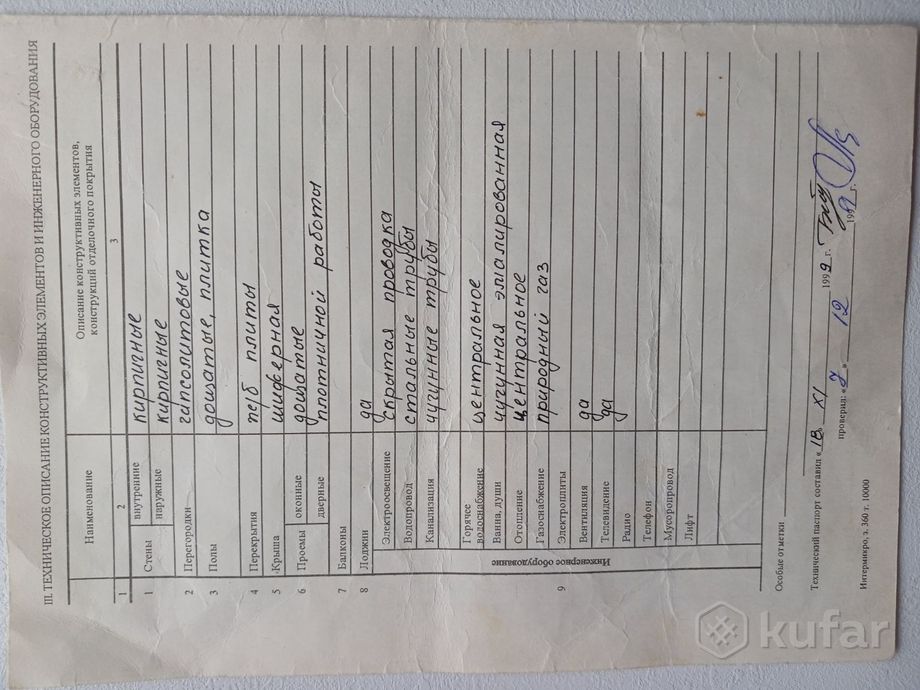 III. ТЕХНИЧЕСКОЕ ОПИСАНИЕ КОНСТРУКТИВНЫХ ЭЛЕМЕНТОВ И ИНЖЕНЕРНОГО ОБОРУДОВАНИЯ
Наименование Описание конструктивных элементов, конструкций отделочного покрытия
1 2 3
1 Стены внутренние кирпичные
наружные кирпичные
2 Перегородки гипсолитовые
3 Полы дощатые, плитка
4 Перекрытия ж/б плиты
5 Крыша шиферная
6 Проемы оконные дощатые
дверные плотничной работы
7 Балконы
8 Лоджии да
9 Инженерное оборудование
Электроосвещение скрытая проводка
Водопровод стальные трубы
Канализация чугунные трубы
Горячее водоснабжение центральное
Ванна, души чугунная эмалированная
Отопление центральное
Газоснабжение природный газ
Электроплиты
Вентиляция да
Телевидение да
Радио
Телефон
Мусоропровод
Лифт
Особые отметки
Технический паспорт составил «18» XI 1999 г.
проверил: «7» 12 1999 г.
Интермикро, з. 360 т. 10000
kufar